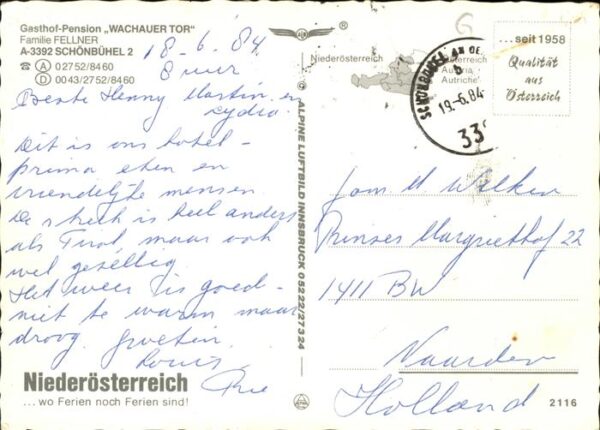 Gasthof-Pension „WACHAUER TOR"
Familie FELLNER
A-3392 SCHÖNBÜHEL 2
☎ Ⓐ 0 27 52/84 60
Ⓓ 00 43/27 52/84 60
18-6-84
8 uur
Beste Henny Martin en
Lydia.
Dit is ons hotel-
prima eten en
vriendelijke mensen
De streek is heel anders
als Tirol, maar ook
wel gezellig.
Het weer is goed-
niet te warm maar
droog. Groeten.
Louis
Niederösterreich
... wo Ferien noch Ferien sind!
ALPINE LUFTBILD INNSBRUCK 0 52 22/27 3 24
Niederösterreich
Österreich
Austria
Autriche
SCHÖNBÜHEL AN DER
19.-6.84
339
...seit 1958
Qualität
aus
Österreich
G
Fam. M. Walker
Prinses Margriethof 22
1411 BW
Naarden
Holland
2116